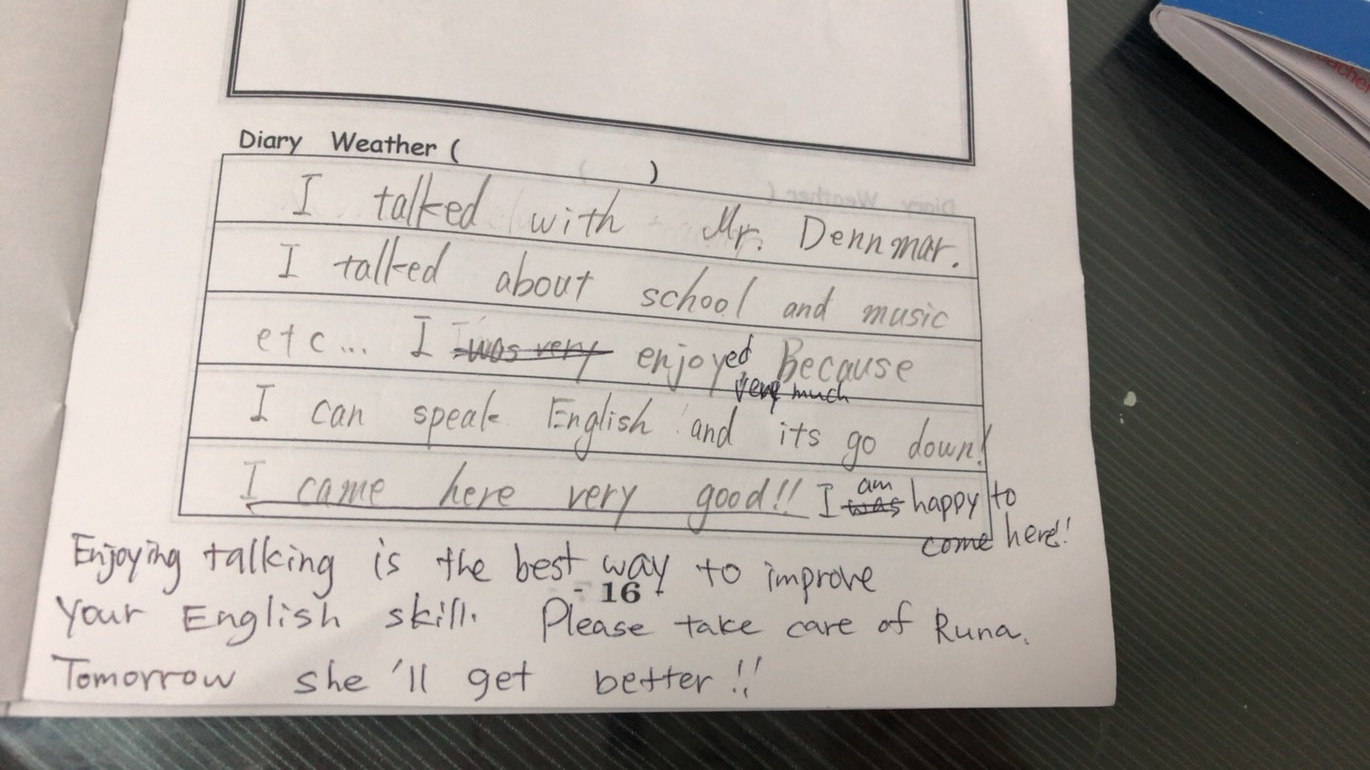 Diary Weather ( )
I talked with Mr. Dennmar.
I talked about school and music
etc... I was very enjoyed Because
very much
I can speak English and its go down!
I came here very good!! I was am happy to
come here!
Enjoying talking is the best way to improve
- 16 -
your English skill. Please take care of Runa.
Tomorrow she'll get better!!